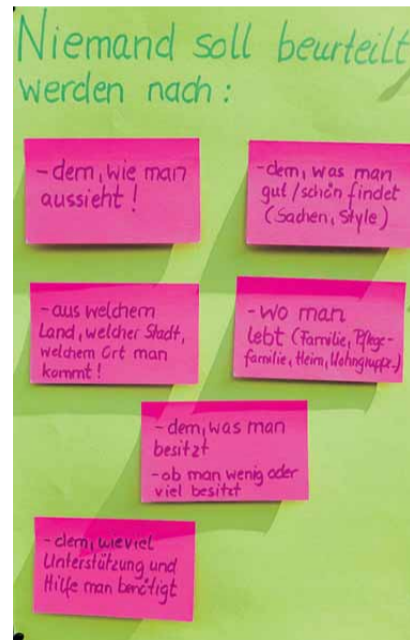 Niemand soll beurteilt
werden nach:
- dem, wie man
aussieht!
- dem, was man
gut/schön findet
(Sachen, Style)
- aus welchem
Land, welcher Stadt,
welchem Ort man
kommt!
- wo man
lebt (Familie, Pflege-
familie, Heim, Wohngruppe..)
- dem, was man
besitzt
- ob man wenig oder
viel besitzt
- dem, wieviel
Unterstützung und
Hilfe man benötigt